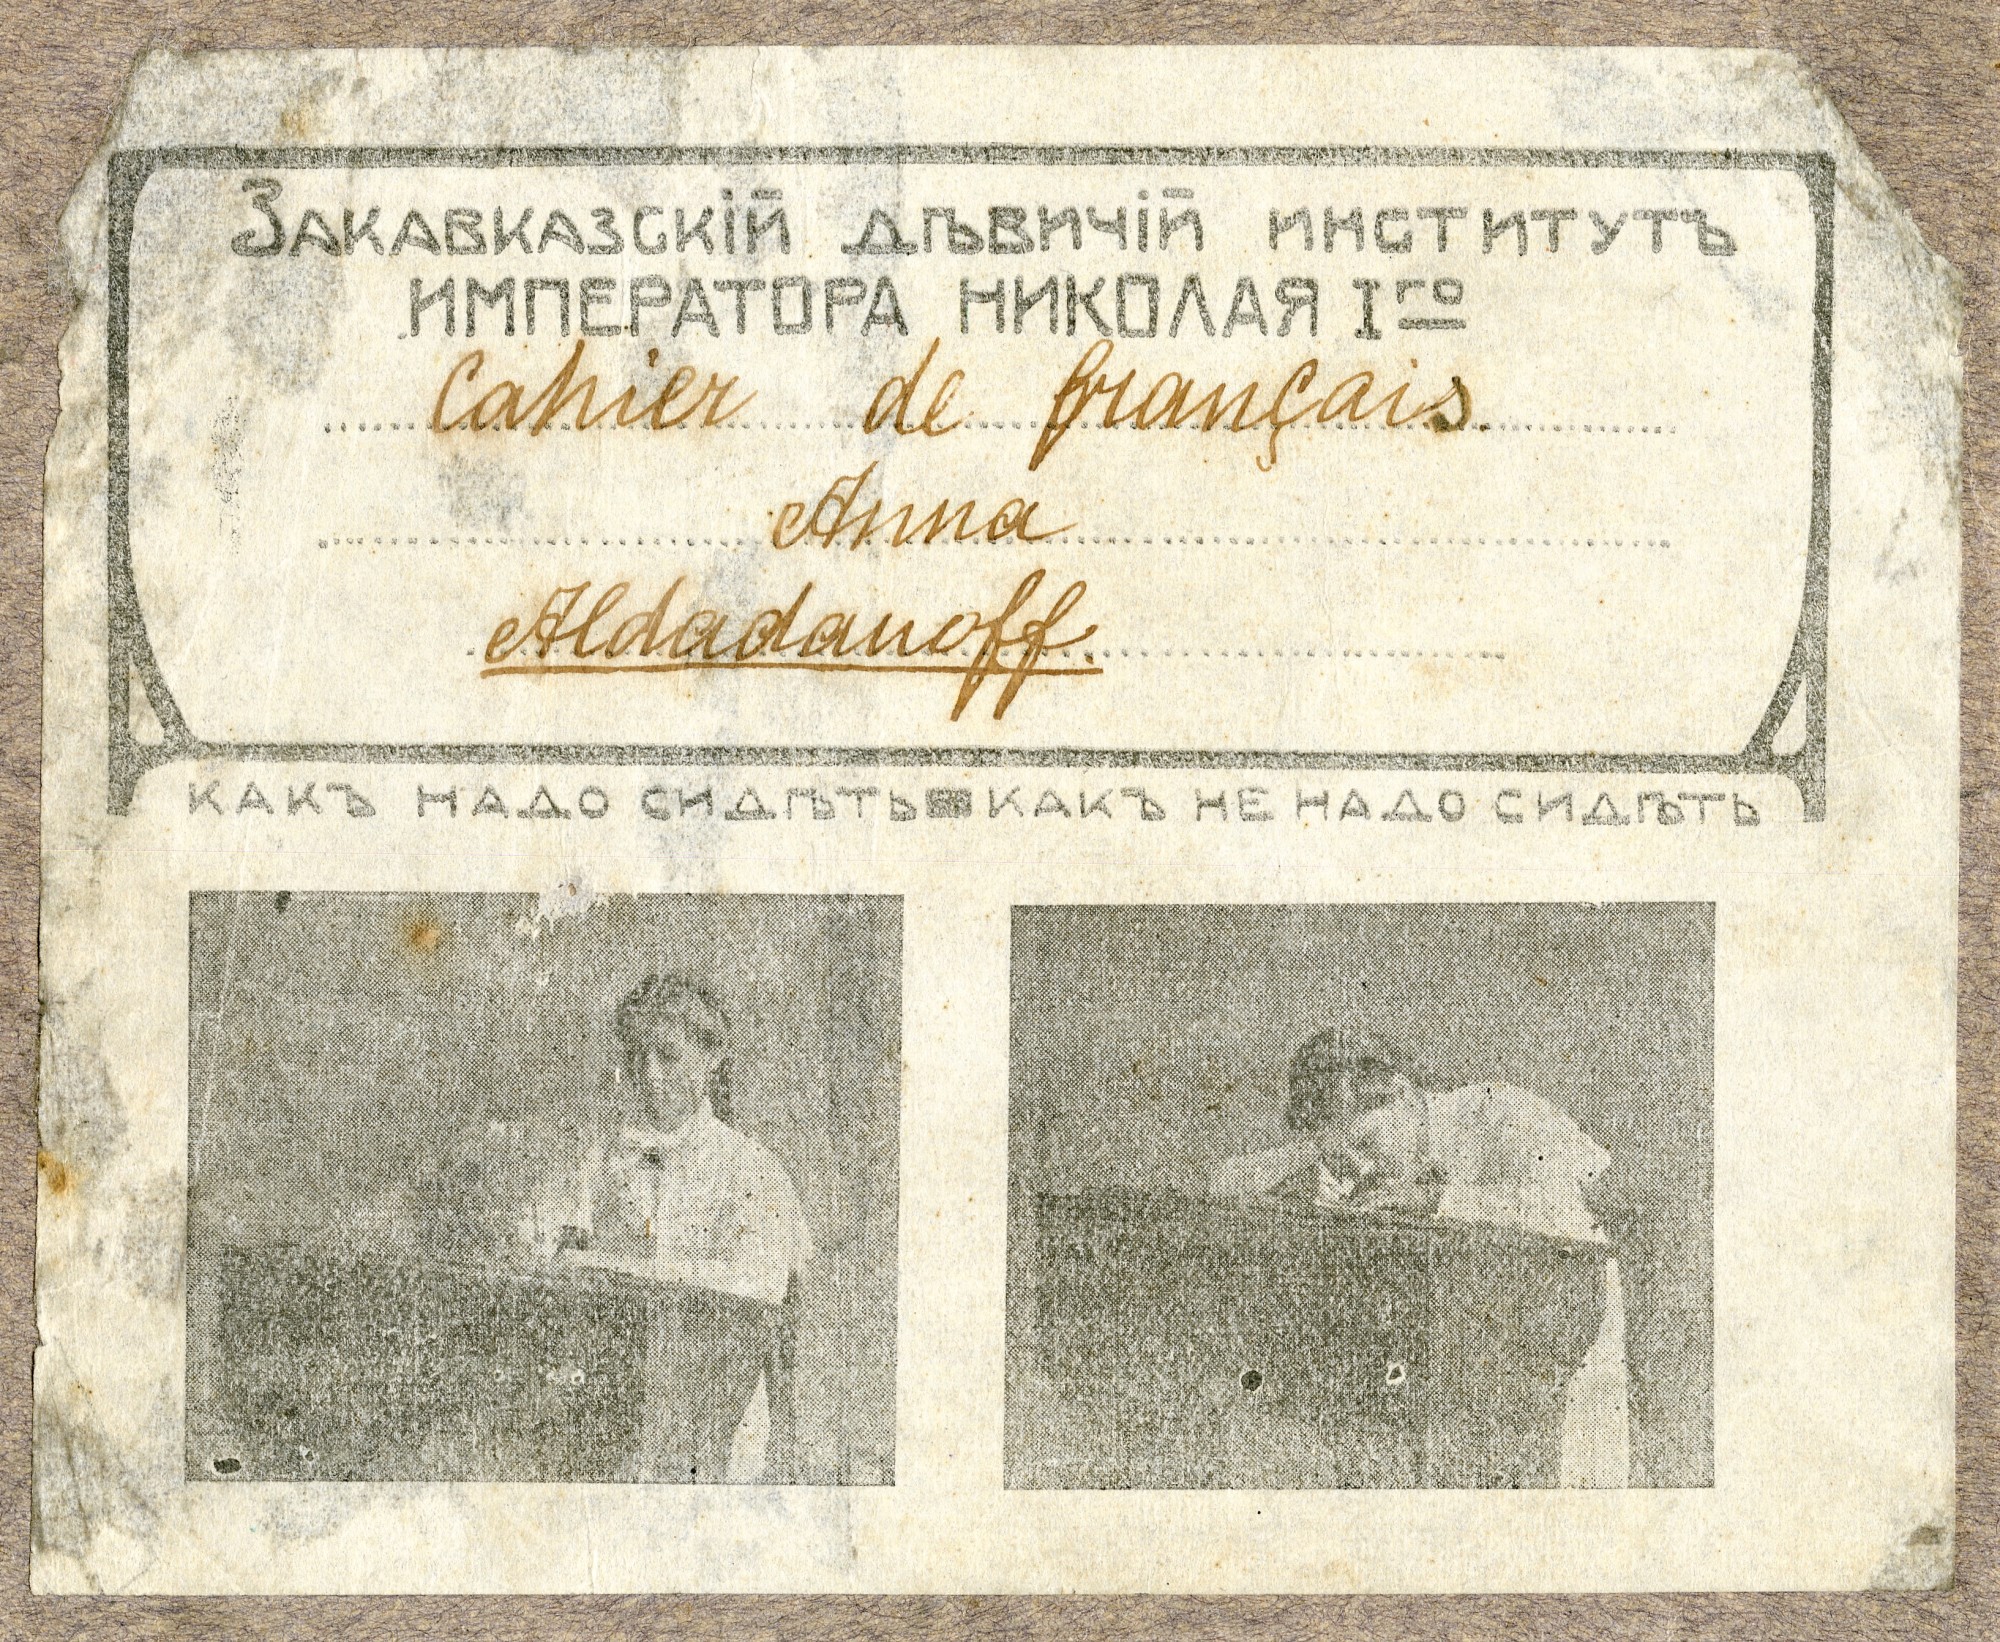 Закавказскій дѣвичій институтъ
императора Николая Iго
Cahier de français.
Anna
Aldadanoff.
какъ надо сидѣть какъ не надо сидѣть